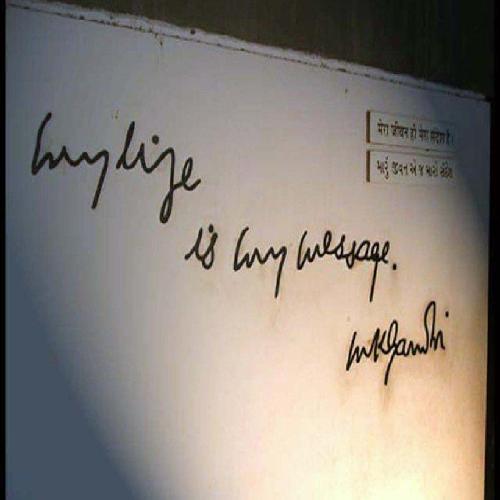 my life
is my message.
mkGandhi
मेरा जीवन ही मेरा संदेश है।
મારું જીવન એ જ મારો સંદેશ